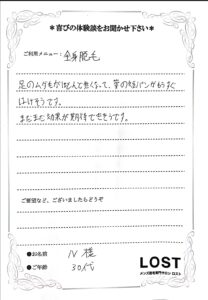 ＊喜びの体験談をお聞かせ下さい＊
ご利用メニュー：全身脱毛
足のムダ毛がほとんど無くなって、夏の短パンがもうすぐ
はけそうです。
まだまだ効果が期待できそうです。
ご要望など、ございましたらどうぞ
●お名前 N 様
●ご年齢 30代
LOST
メンズ脱毛専門サロン ロスト